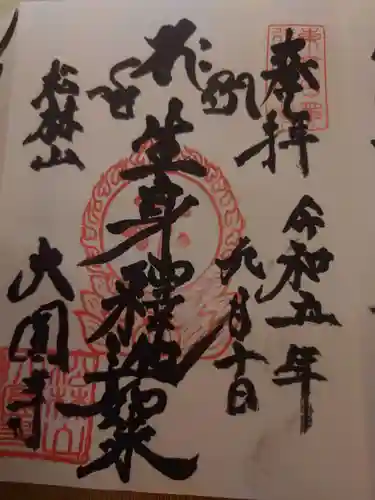 奉拝
令和五年
九月十日
生身釋迦如来
松林山
大圓寺